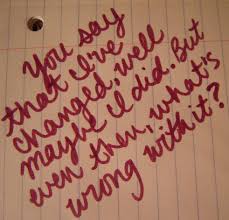 You say
that I've
changed, well
maybe I did. But
even then, what's
wrong with it?